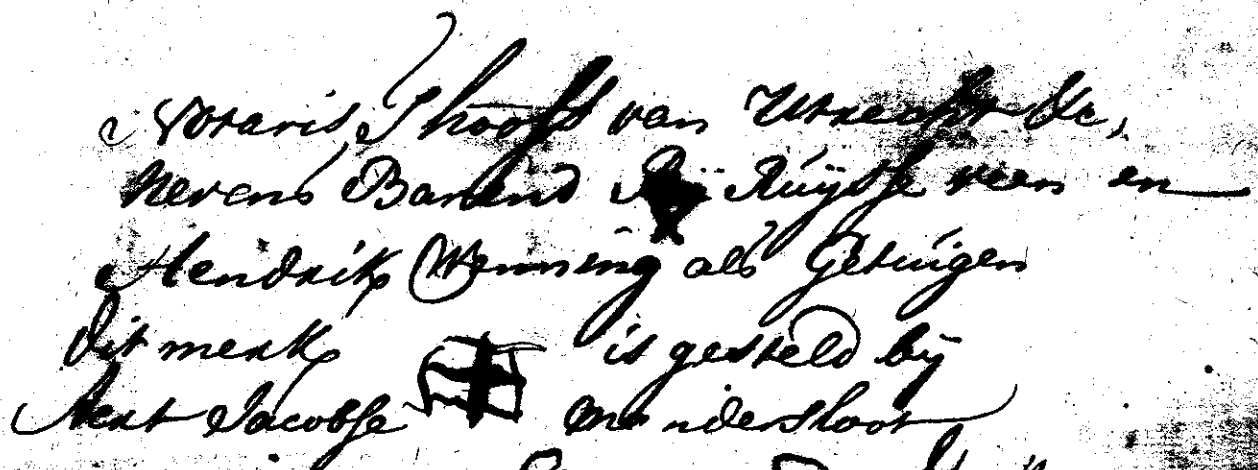 Notaris, T hooft van Utrecht &c,
Nevens Barend Ruijsse veen en
Hendrik Wenning als Getuijgen
dit merk is gesteld bij
Aert Jacobsse